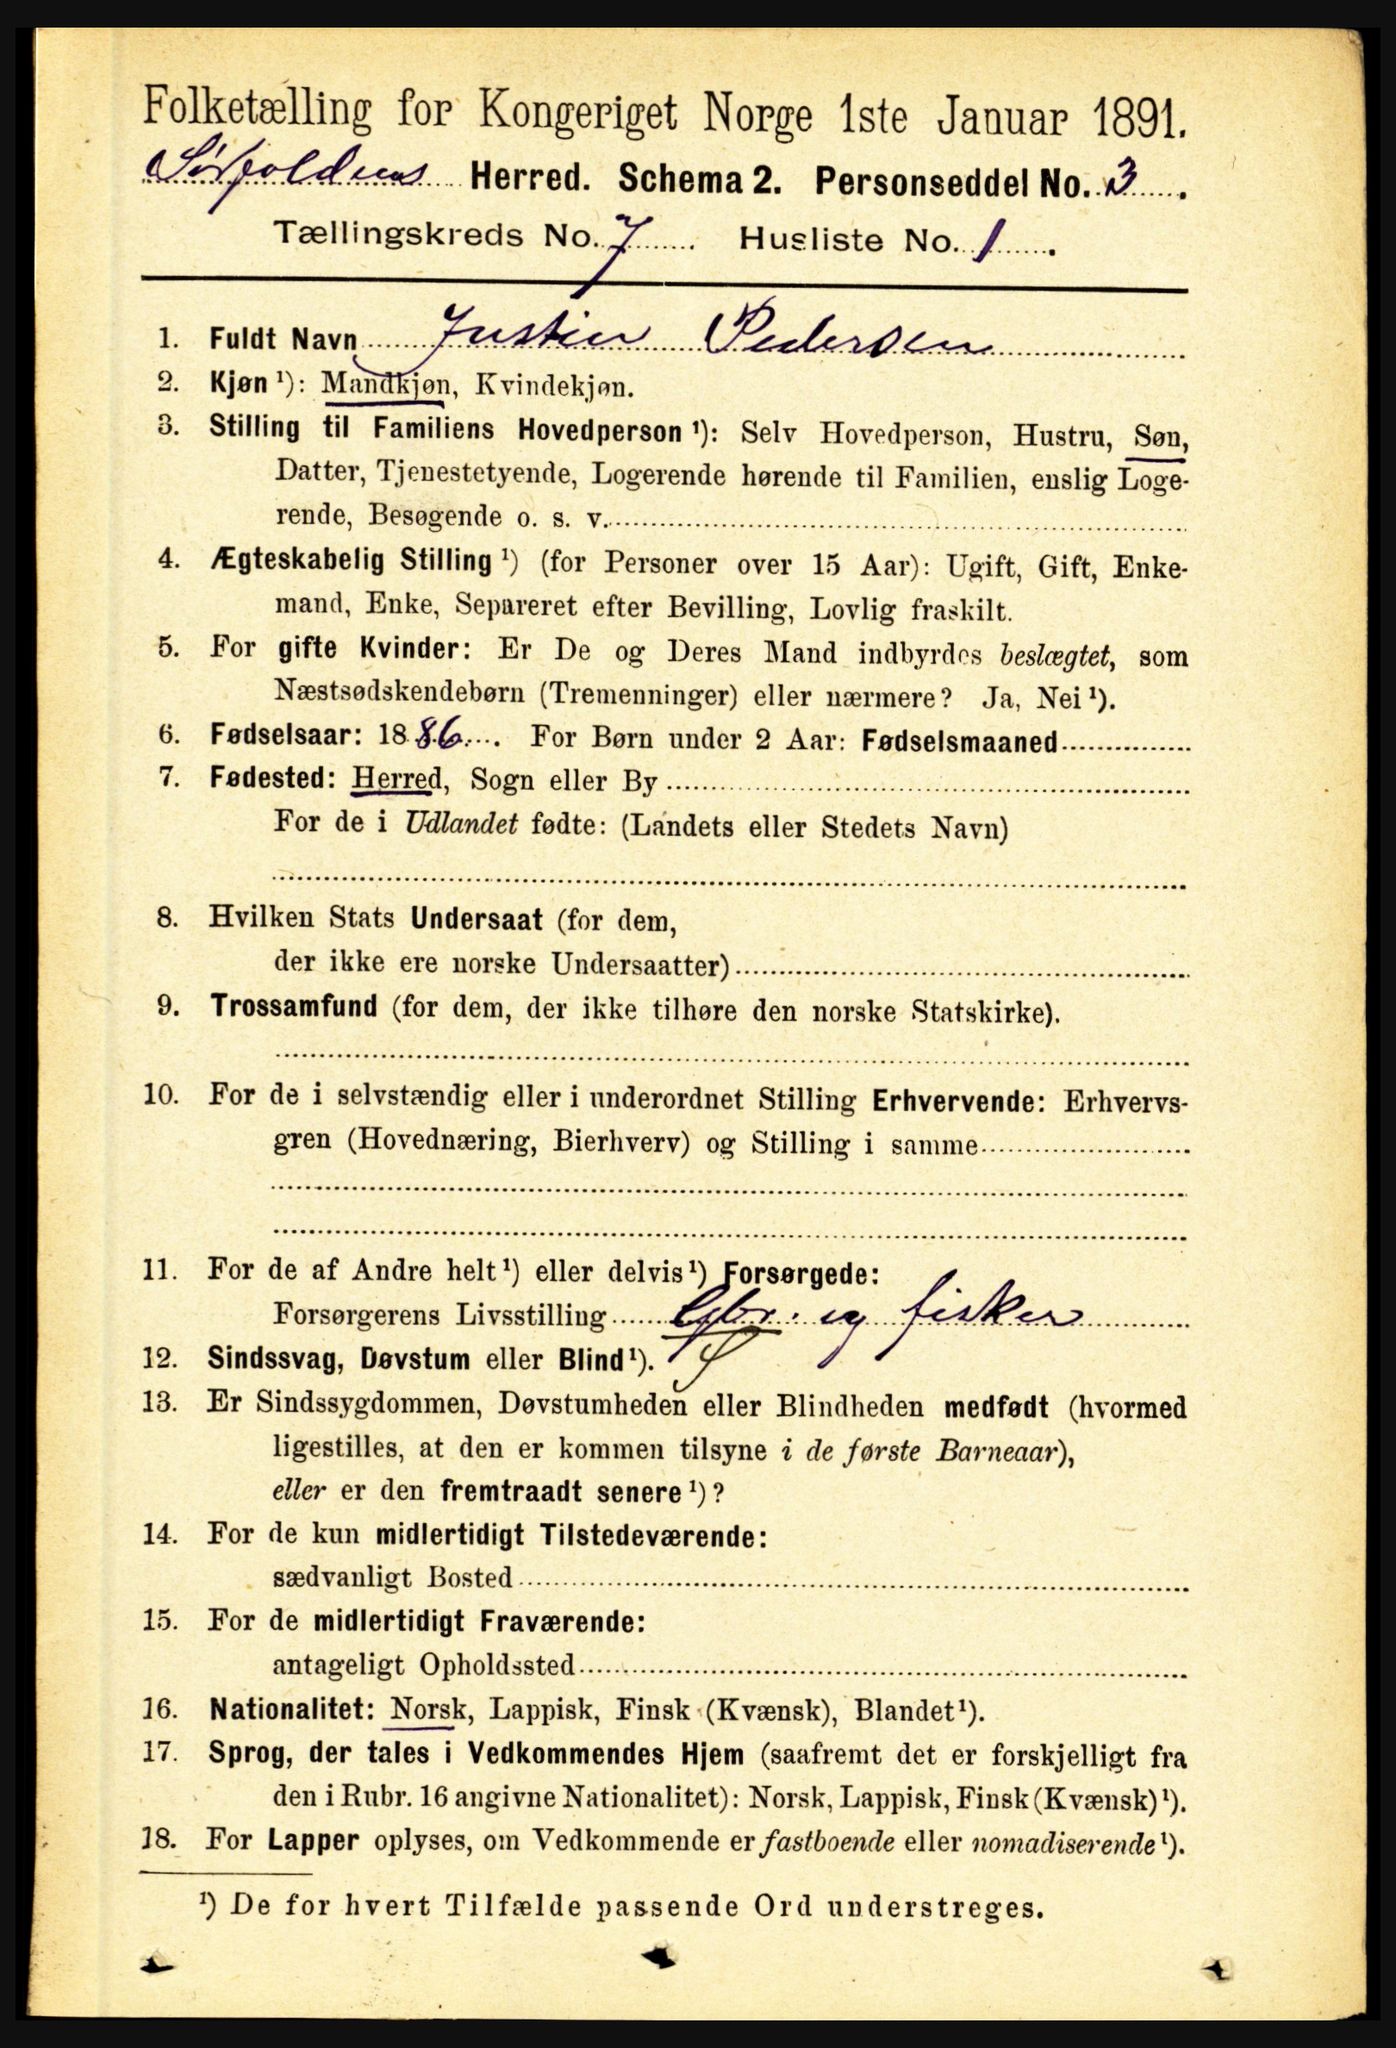 Folketælling for Kongeriget Norge 1ste Januar 1891.
Sørfoldens Herred. Schema 2. Personseddel No. 3.
Tællingskreds No. 7 Husliste No. 1.
1. Fuldt Navn Justin Pedersen
2. Kjøn ¹): Mandkjøn, Kvindekjøn.
3. Stilling til Familiens Hovedperson ¹): Selv Hovedperson, Hustru, Søn,
Datter, Tjenestetyende, Logerende hørende til Familien, enslig Loge-
rende, Besøgende o. s. v.
4. Ægteskabelig Stilling ¹) (for Personer over 15 Aar): Ugift, Gift, Enke-
mand, Enke, Separeret efter Bevilling, Lovlig fraskilt.
5. For gifte Kvinder: Er De og Deres Mand indbyrdes beslægtet, som
Næstsødskendebørn (Tremenninger) eller nærmere? Ja, Nei ¹).
6. Fødselsaar: 1886. For Børn under 2 Aar: Fødselsmaaned
7. Fødested: Herred, Sogn eller By
For de i Udlandet fødte: (Landets eller Stedets Navn)
8. Hvilken Stats Undersaat (for dem,
der ikke ere norske Undersaatter)
9. Trossamfund (for dem, der ikke tilhøre den norske Statskirke).
10. For de i selvstændig eller i underordnet Stilling Erhvervende: Erhvervs-
gren (Hovednæring, Bierhverv) og Stilling i samme
11. For de af Andre helt ¹) eller delvis ¹) Forsørgede:
Forsørgerens Livsstilling Gbr. og fisker
12. Sindssvag, Døvstum eller Blind ¹).
13. Er Sindssygdommen, Døvstumheden eller Blindheden medfødt (hvormed
ligestilles, at den er kommen tilsyne i de første Barneaar),
eller er den fremtraadt senere ¹)?
14. For de kun midlertidigt Tilstedeværende:
sædvanligt Bosted
15. For de midlertidigt Fraværende:
antageligt Opholdssted
16. Nationalitet: Norsk, Lappisk, Finsk (Kvænsk), Blandet ¹).
17. Sprog, der tales i Vedkommendes Hjem (saafremt det er forskjelligt fra
den i Rubr. 16 angivne Nationalitet): Norsk, Lappisk, Finsk (Kvænsk) ¹).
18. For Lapper oplyses, om Vedkommende er fastboende eller nomadiserende ¹).
¹) De for hvert Tilfælde passende Ord understreges.